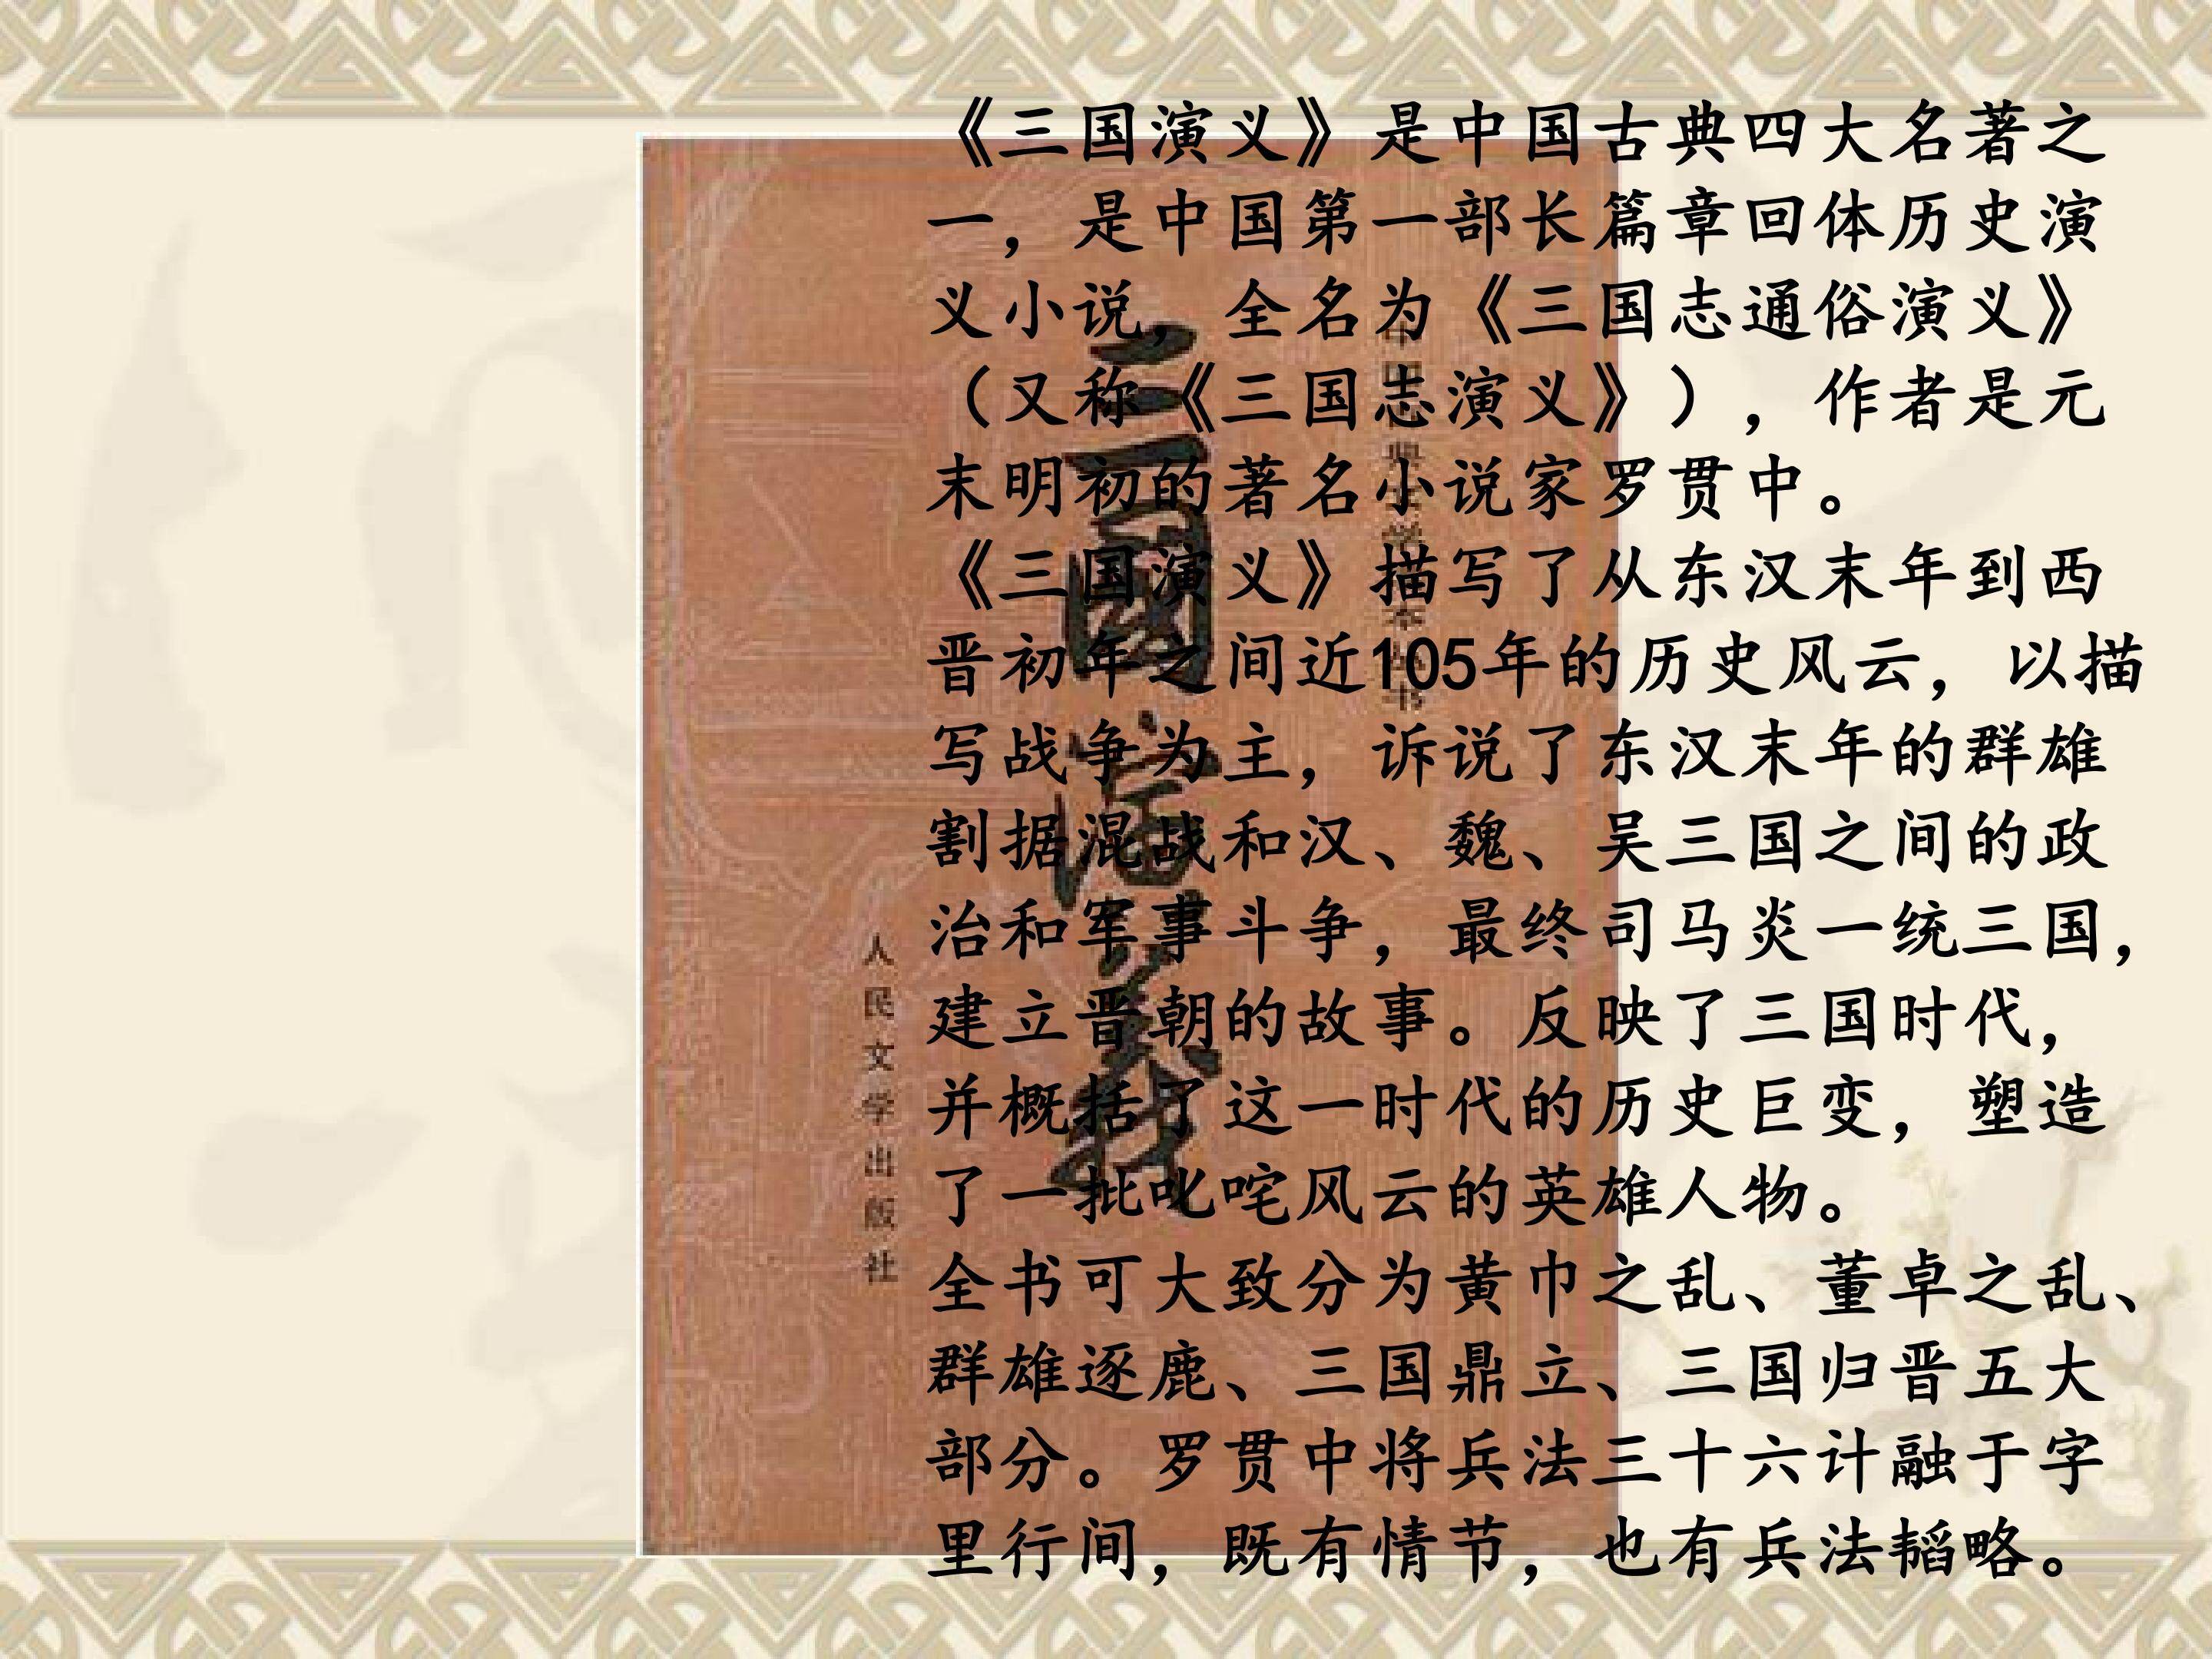 《三国演义》是中国古典四大名著之
一，是中国第一部长篇章回体历史演
义小说，全名为《三国志通俗演义》
（又称《三国志演义》），作者是元
末明初的著名小说家罗贯中。
《三国演义》描写了从东汉末年到西
晋初年之间近105年的历史风云，以描
写战争为主，诉说了东汉末年的群雄
割据混战和汉、魏、吴三国之间的政
治和军事斗争，最终司马炎一统三国，
建立晋朝的故事。反映了三国时代，
并概括了这一时代的历史巨变，塑造
了一批叱咤风云的英雄人物。
全书可大致分为黄巾之乱、董卓之乱、
群雄逐鹿、三国鼎立、三国归晋五大
部分。罗贯中将兵法三十六计融于字
里行间，既有情节，也有兵法韬略。
三國演義
人民文学出版社